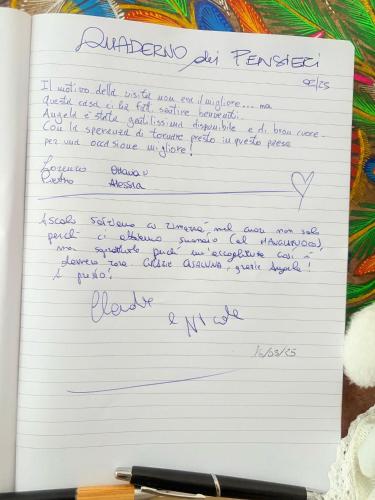 QUADERNO dei PENSIERI
02/25
Il motivo della visita non era il migliore... ma
questa casa ci ha fatti sentire benvenuti.
Angela è stata gentilissima disponibile e di buon cuore.
Con la speranza di tornare presto in questo paese
per una occasione migliore!
Lorenzo Ottavia
Pietro Alessia
Ascoli Satriano ci rimarrà nel cuore non solo
perché ci abbiamo suonato (al
ma soprattutto perché un'accoglienza così è
davvero rara. GRAZIE grazie Angela!
A presto!
Claudia
e Nicole
/03/25